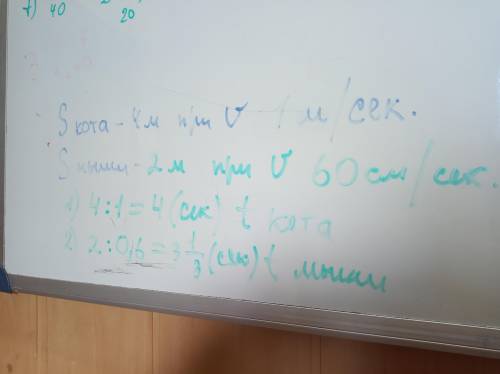 7) 40
20
S кота - 4 м при V - 1 м/сек.
S мыши - 2 м при V 60 см/сек.
1) 4:1=4 (сек) t кота
2) 2:0,6=3 1/3 (сек) t мыши